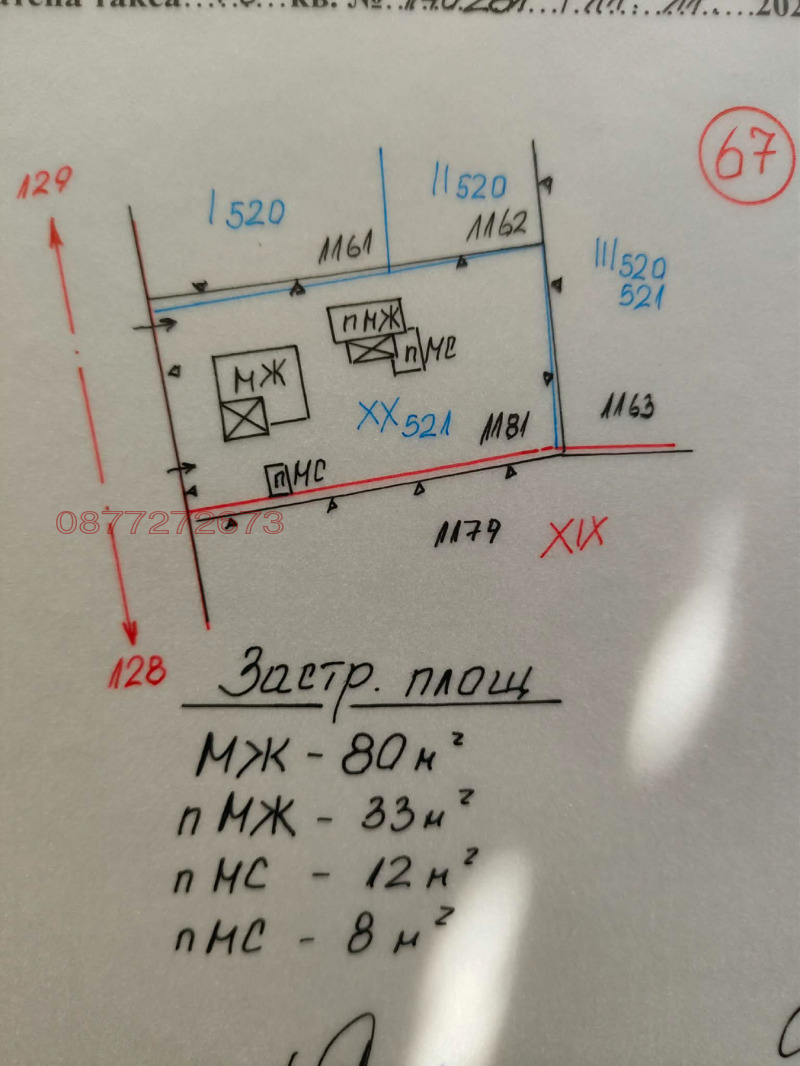 такса
кв. №
202
67
129
I 520
II 520
1161
1162
III 520
521
пМЖ
пМС
МЖ
XX 521
1181
1163
пМС
0877272673
1179
XIX
128
Застр. площ
МЖ - 80 м²
пМЖ - 33 м²
пМС - 12 м²
пМС - 8 м²